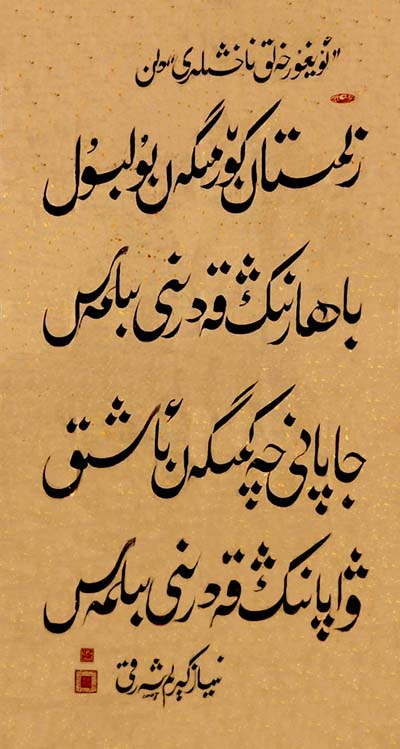 «ئۇيغۇر خەلق ناخشىلىرى»دىن
زىمىستان كۆرمىگەن بۇلبۇل
باھارنىڭ قەدرىنى بىلمەس
جاپانى چەكمىگەن ئاشىق
ۋاپانىڭ قەدرىنى بىلمەس
نىياز كېرىم شەرقى